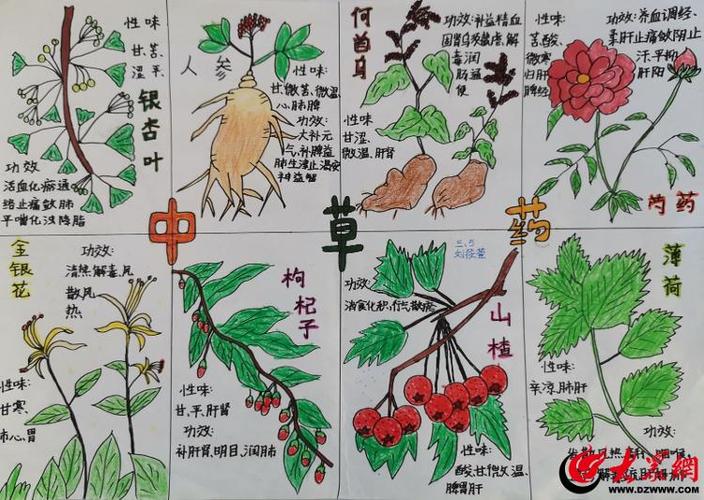 性味
甘、苦、
涩、平
银杏叶
功效
活血化瘀通
络止痛敛肺
平喘化浊降脂
人参
性味:
甘、微苦、微温、
心、肺脾
功效:
大补元
气、补脾益
肺生津止渴安
神益
何首乌
功效:补益精血
解
毒润
肠通
便
性味
甘涩、
微温、肝肾
性味:
苦、酸、
微寒
归肝
脾经
功效:养血调经、
柔肝止痛敛阴止
汗、平抑
肝阳
芍药
中草药
金银花
功效:
清热解毒、
散风
热
性味:
甘寒、
肺心、胃
枸杞子
性味:
甘、平、肝肾
功效:
补肝肾、明目、润肺
三、5
功效:
消食化积、行气散瘀
山楂
性味:
酸、甘微温、
脾胃肝
薄荷
性味:
辛、凉、肺肝
功效:
大众网
WWW.DZWWW.COM